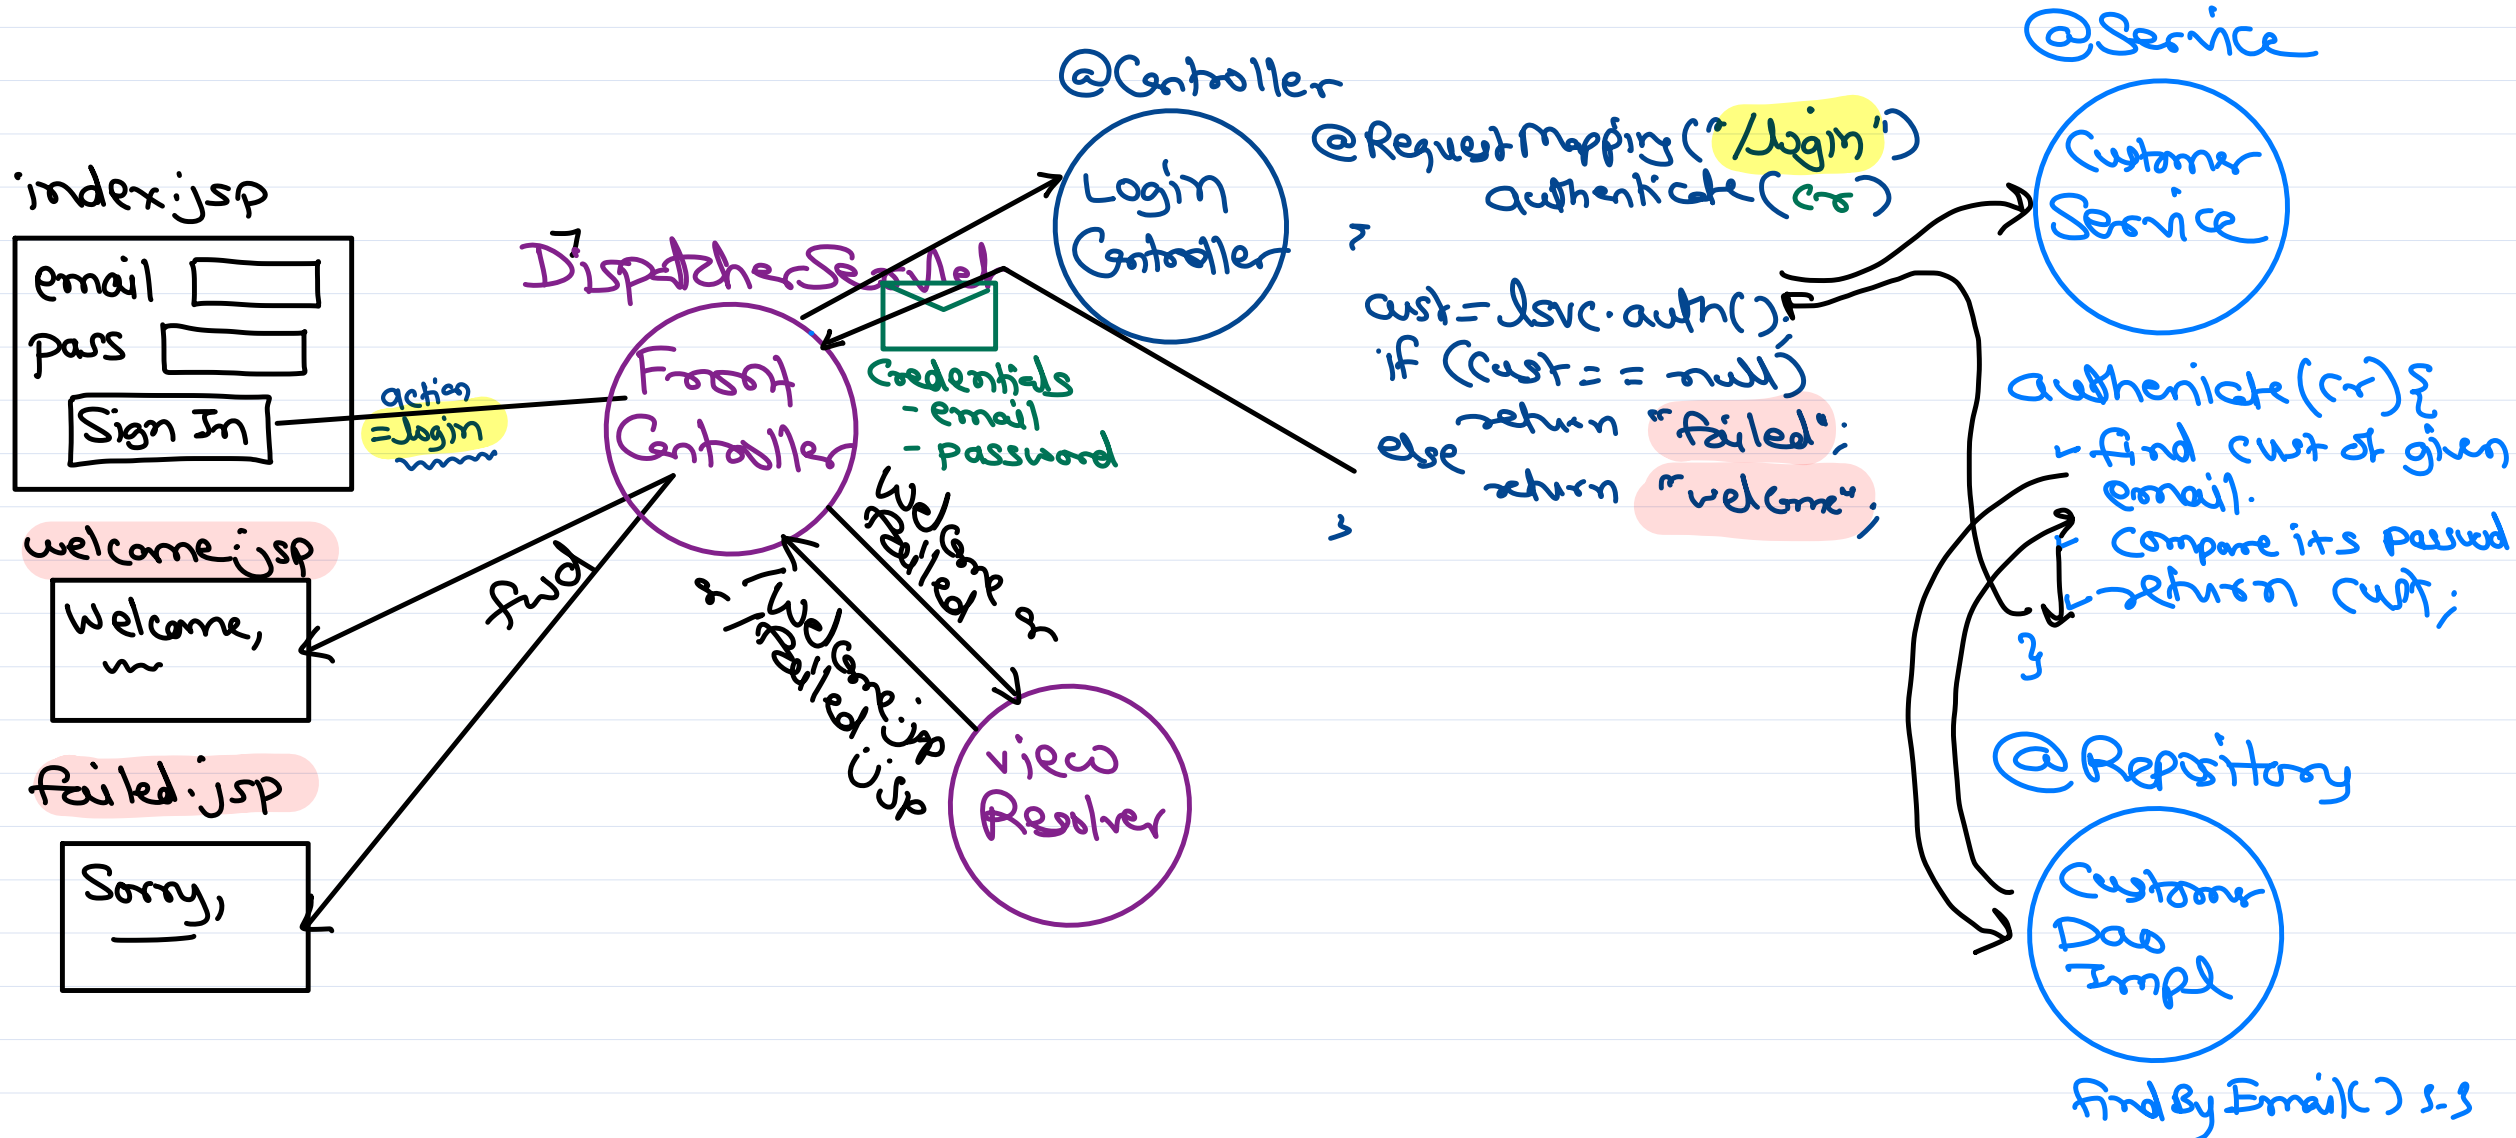 index.jsp
email
pass
Sign In
action
=login
welcome.jsp
Welcome,
failed.jsp
Sorry,
Dispatcher Servlet
Front
Controller
Credentials
- email
- password
Fwd
welcome or
failed
welcome.jsp
or
failed.jsp
View
Resolver
@Controller
Login
Controller
@RequestMapping("/login")
authenticate (Cr)
{
cust = dsvc.auth();
if (cust == null)
return "failed";
else
return "welcome";
}
@Service
Customer
Service
authenticate (cr) {
- find cust of given
email.
- Compare its passwd
- return cust;
}
@Repository
Customer
Dao
Impl
findByEmail() {--}